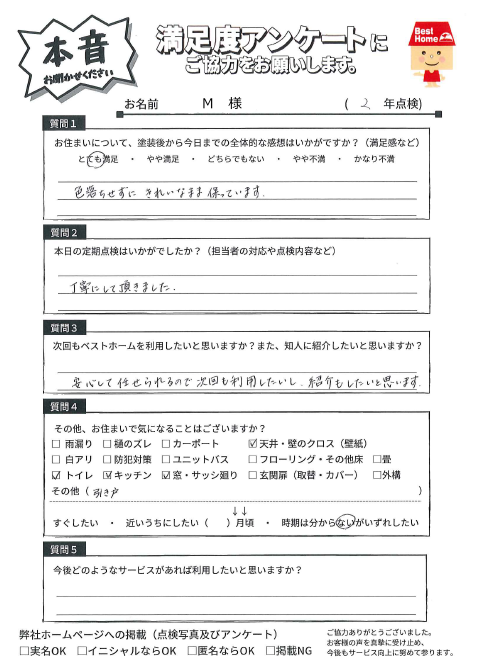 本音
お聞かせください
満足度アンケートに
ご協力をお願いします。
Best Home
お名前 M 様 ( 2 年点検)
質問1
お住まいについて、塗装後から今日までの全体的な感想はいかがですか？（満足感など）
とても満足 ・ やや満足 ・ どちらでもない ・ やや不満 ・ かなり不満
色落ちせずに きれいなまま 保っています.
質問2
本日の定期点検はいかがでしたか？（担当者の対応や点検内容など）
丁寧にして頂きました.
質問3
次回もベストホームを利用したいと思いますか？また、知人に紹介したいと思いますか？
安心して任せられるので次回も利用したいし、紹介もしたいと思います.
質問4
その他、お住まいで気になることはございますか？
□ 雨漏り □ 樋のズレ □ カーポート ☑ 天井・壁のクロス（壁紙）
□ 白アリ □ 防犯対策 □ ユニットバス □ フローリング・その他床 □畳
☑ トイレ ☑ キッチン ☑ 窓・サッシ廻り □ 玄関扉（取替・カバー） □外構
その他（ 引き戸 ）
↓↓
すぐしたい ・ 近いうちにしたい（ ）月頃 ・ 時期は分からないがいずれしたい
質問5
今後どのようなサービスがあれば利用したいと思いますか？
弊社ホームページへの掲載（点検写真及びアンケート）
□実名OK □イニシャルならOK □匿名ならOK □掲載NG
ご協力ありがとうございました。
お客様の声を真摯に受け止め、
今後もサービス向上に努めて参ります。